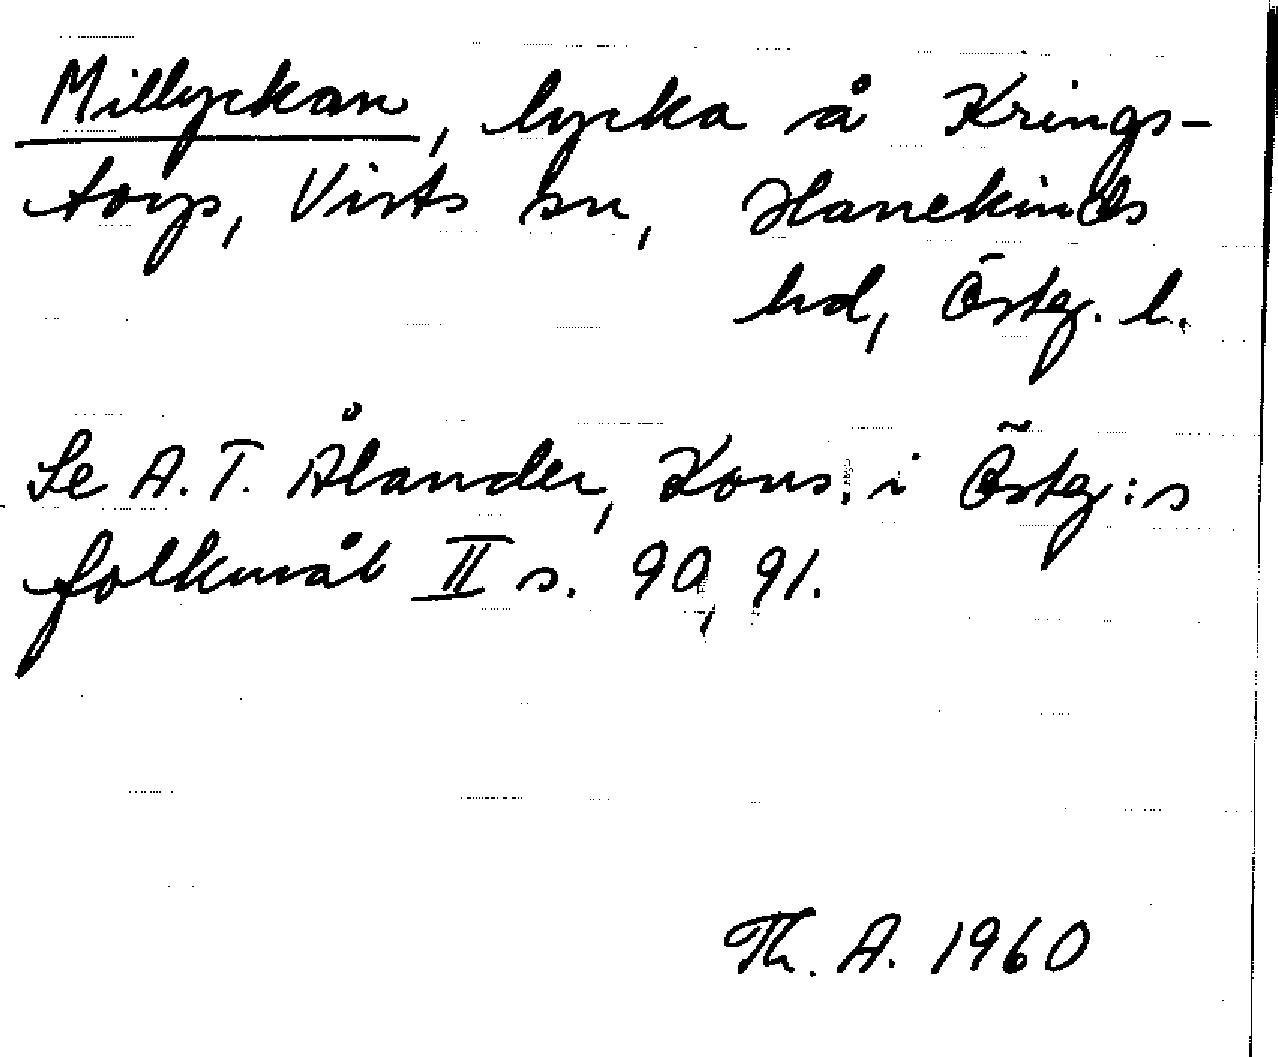 Millyckan, lycka å Krings-
torp, Vists sn, Hanekinds
hd, Östg. l.
Se A. T. Ålander, Kons. i Östg:s
folkmål II s. 90, 91.
Th. A. 1960